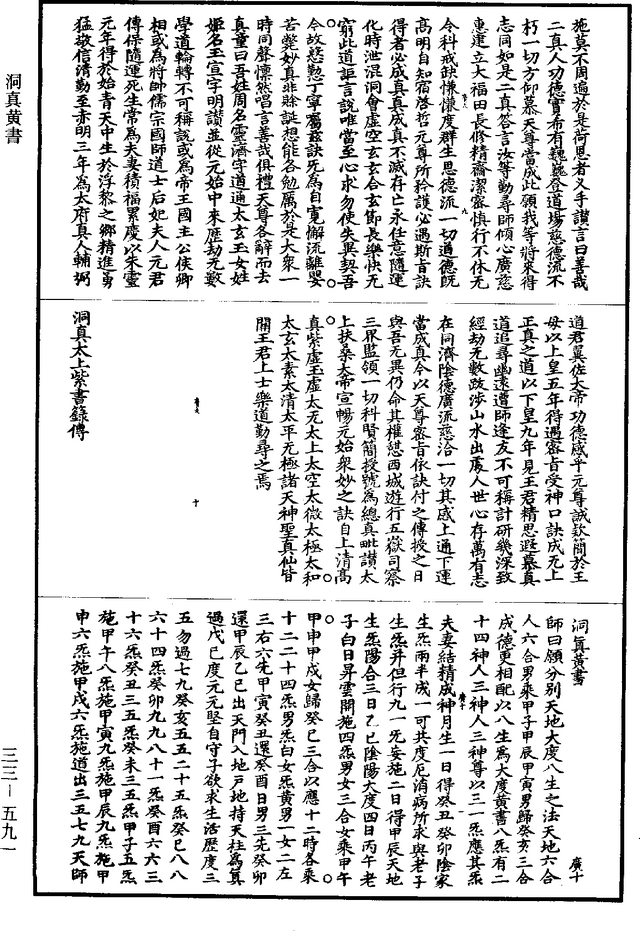 洞真黃書
三三—五九一
施莫不周遍於是荷恩者叉手讚言曰善哉
二真人功德實希有巍巍登道場慈德流不
朽一切方仰慕天尊當成此願我等將來得
志同如是二真荅言汝等勤尋師傾心廣慈
惠建立大福田長修精齋潔客慎行不休无
令科戒缺慊慊度群生思德流一切道德既
高明自知宿啓哲元尊所矜護必遇斯音訣
得者必成真真成真不滅存亡永任意隨運
化時泄混洞會虛空玄玄合玄節長樂快无
窮此道謳言說唯當至心求勿使失異契吾
今故慈懃丁寧屬茲訣旡為自寬懈流離嬰
苦斃妙真非餘誕想能各勉厲於是大衆一
時同聲懍然唱言善哉俱禮天尊各辭而去
真童曰吾姓周名靈濟字道通太玄玉女姓
姬名玉宣字明讚並從元始中來歷劫无數
學道輪轉不可稱說或為帝王國主公侯卿
相或為將帥儒宗國師道士后妃夫人元君
傳保隨運死生常為夫妻積福累慶以朱靈
元年得於始青天中生於浮黎之鄉精進勇
猛敬信清勤至赤明三年為太府真人輔弼
道君翼佐大帝功德感乎元尊誠欵簡於王
母以上皇五年得遇密旨受神口訣成无上
正真之道以下皇九年見王君精思遐慕真
道追尋幽遠遭師逢友不可稱計研幾深致
經劫无數跋涉山水出處人世心存萬有志
在同濟陰德廣流慈洽一切其感上通下運
當成真今以天尊密旨依訣付之傳授之日
與吾无異仍命其權憇西城遊行五嶽司察
三界監領一切科賢簡授號為總真毗讚太
上扶桑大帝宣暢元始衆妙之訣自上清高
真紫虛玉虛太无太上太空太微太極太和
太玄太素太清太平无極諸天神聖真仙皆
關王君上士樂道勤尋之焉
洞真太上紫書錄傳
洞真黃書　廣十
師曰願分別天地大度八生之法天地六合
人六合男乘甲子甲辰甲寅男歸癸亥三合
成德更相配以八生為大度黃書八炁有二
十四神人三神人三神尊以三一炁應其炁
夫妻結精成神月生一日得癸丑癸卯陰家
生炁兩半成一可共度厄消病所求與老子
生炁并但行九一死妄施二日得甲辰天地
生炁陽合三日乙巳陰陽大度四日丙午老
子白日昇雲開施四炁男女三合女乘甲午
甲申甲戌女歸癸巳三合以應十二時各乘
十二二十四炁男炁白女炁黃男一女二左
三右六先甲寅癸丑還癸酉日男三先癸卯
還甲辰乙巳出天門入地戶地持天柱為真
過戊巳度元元堅自守子欲求生活歷度三
五勿過七九癸亥五五二十五炁癸巳八八
六十四炁癸卯九九八十一炁癸酉六六三
十六炁癸丑三五炁癸未三五炁甲子五炁
施甲午八炁施甲寅九炁施甲辰九炁施甲
申六炁施甲戌六炁施道出三五七九天師